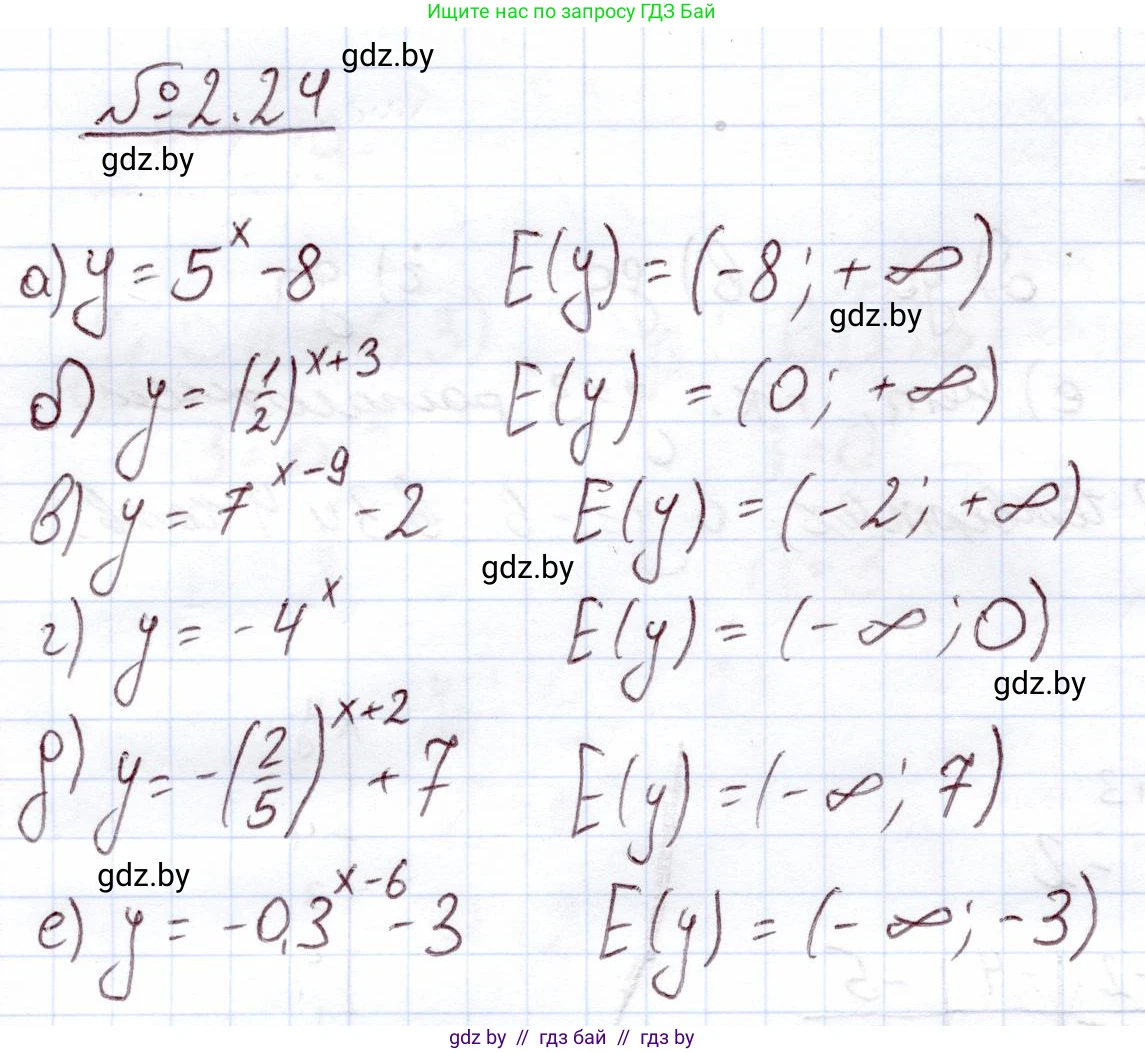 Ищите нас по запросу ГДЗ Бай
№ 2.24
gdz.by
gdz.by
а) y = 5^x - 8 E(y) = (-8; +∞)
gdz.by
б) y = (1/2)^{x+3} E(y) = (0; +∞)
в) y = 7^{x-9} - 2 E(y) = (-2; +∞)
gdz.by
г) y = -4^x E(y) = (-∞; 0)
gdz.by
д) y = -(2/5)^{x+2} + 7 E(y) = (-∞; 7)
gdz.by
е) y = -0,3^{x-6} - 3 E(y) = (-∞; -3)
gdz.by // гдз бай // гдз by